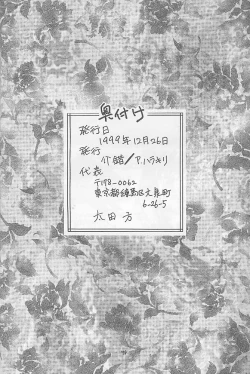 奥付け
発行日
1999年12月26日
発行
介錯/A.ハラキリ
代表
〒178-0062
東京都練馬区大泉町
6-26-5
太田 方